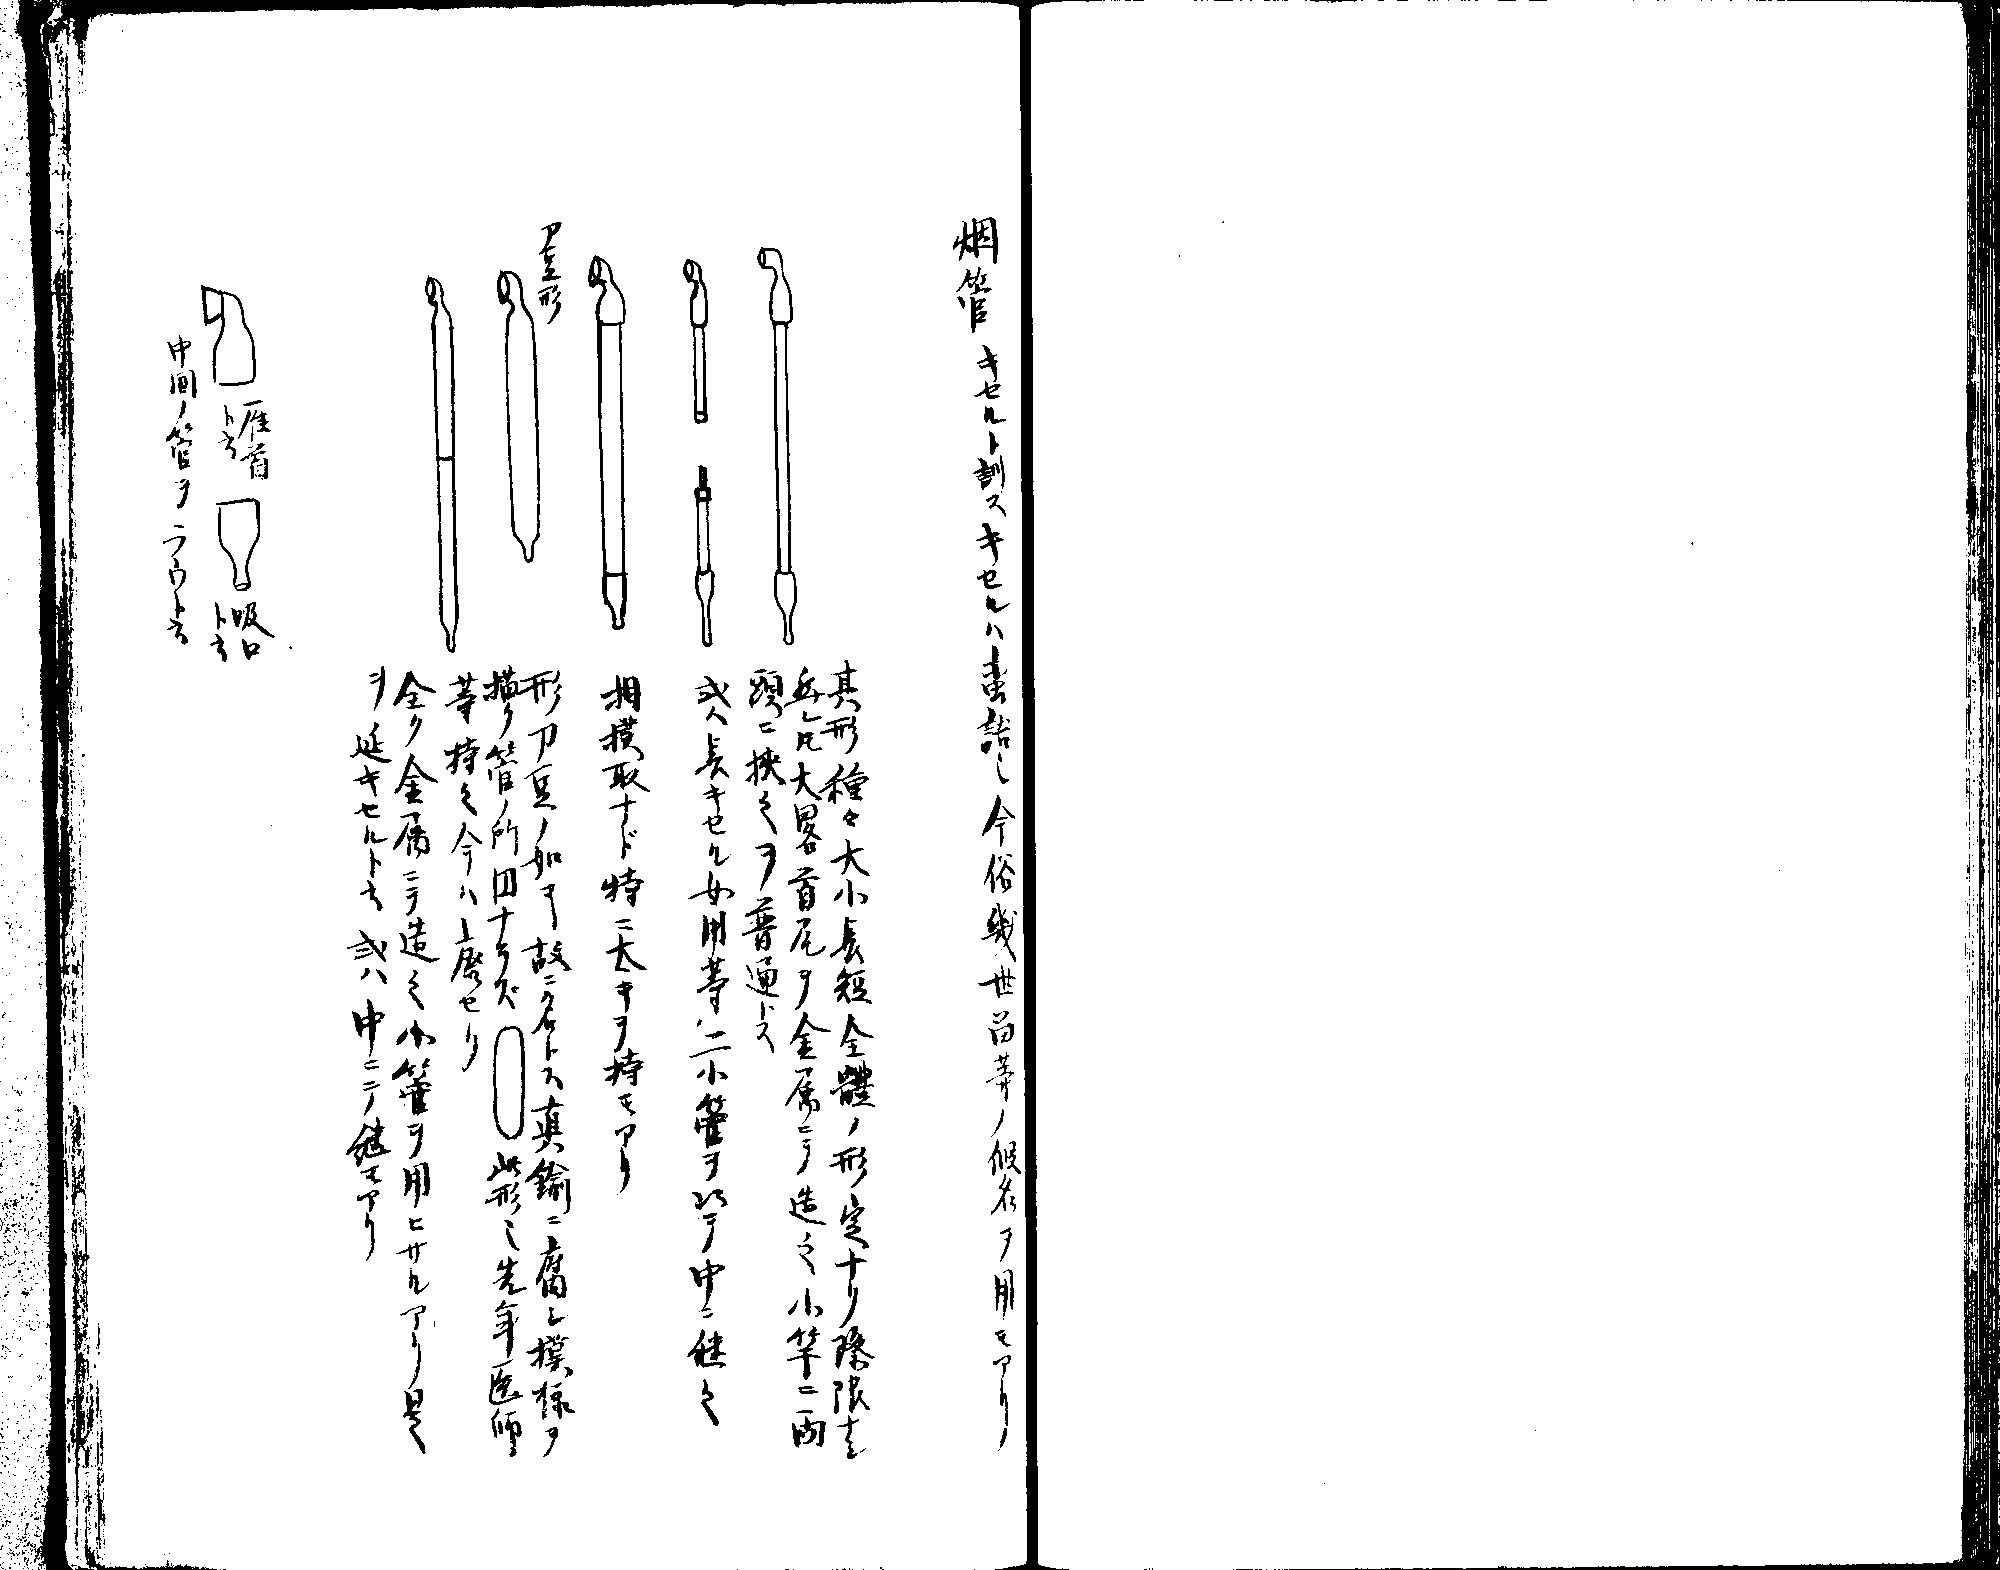 烟管 キセルト訓ス キセルハ蛮語也 今俗幾世留等ノ假名ヲ用モアリ
其形種々大小長短全體ノ形定ナリ際限
無シ尺大畧首尾ヲ金属ニテ造之小竿ニ両
頭ニ挾之ヲ普通トス
或ハ長キセル女用等ハ二小管ヲ以テ中ニ継之
相撲取ナド特ニ太キヲ持モアリ
刀豆形
形刀豆ノ如ヲ故ニ名トス真鍮ニ腐シ模様ヲ
描ク管ノ所円ナラズ 此形也先年医師
等持之今ハ廃セリ
全ク金属ニテ造之小管ヲ用ヒサルアリ是
ヲ延キセルト云 或ハ中ニテ継モアリ
雁首
ト云
吸口
ト云
中間ノ管ヲラウト云